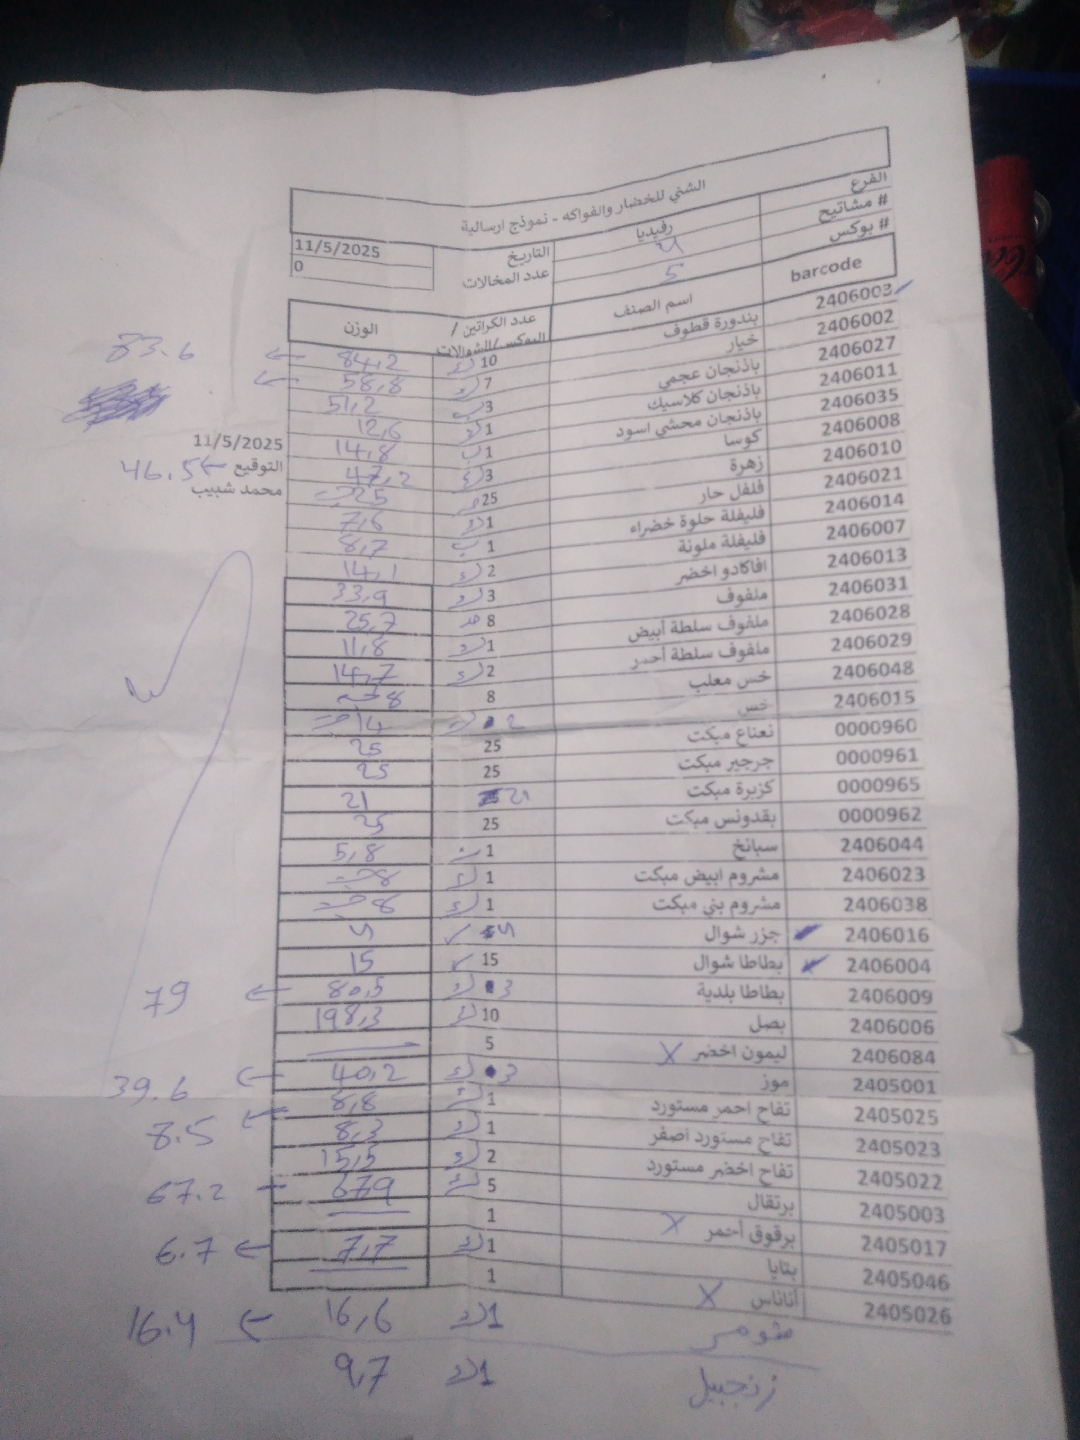 الشني للخضار والفواكه - نموذج ارسالية
الفرع رفيديا التاريخ 11/5/2025
# مشاتيح 4 عدد المخالات 0
# بوكس 5
barcode اسم الصنف عدد الكراتين / البوكس/الشوالات الوزن
2406003 بندورة قطوف 10 84,2 ← 83.6
2406002 خيار 7 58,8 ←
2406027 باذنجان عجمي 3 ب 51,2
2406011 باذنجان كلاسيك 1 12,6
2406035 باذنجان محشي اسود 1 ب 14,8
2406008 كوسا 3 47,2 ← 46.5
2406010 زهرة 25 25
2406021 فلفل حار 1 7,6
2406014 فليفلة حلوة خضراء 1 ب 8,7
2406007 فليفلة ملونة 2 14,1
2406013 افاكادو اخضر 3 33,9
2406031 ملفوف 8 25,7
2406028 ملفوف سلطة أبيض 1 11,8
2406029 ملفوف سلطة أحمر 2 14,7
2406048 خس معلب 8 8
2406015 خس 2 14
0000960 نعناع مبكت 25 25
0000961 جرجير مبكت 25 25
0000965 كزبرة مبكت 21 21
0000962 بقدونس مبكت 25 25
2406044 سبانخ 1 5,8
2406023 مشروم ابيض مبكت 1 8
2406038 مشروم بني مبكت 1 8
2406016 جزر شوال 4 4
2406004 بطاطا شوال 15 15
2406009 بطاطا بلدية 3 80,5 ← 79
2406006 بصل 10 198,3
2406084 ليمون اخضر X 5
2405001 موز 3 40,2 ← 39.6
2405025 تفاح احمر مستورد 1 8,8 ← 8.5
2405023 تفاح مستورد اصفر 1 8,3
2405022 تفاح اخضر مستورد 2 15,5
2405003 برتقال 5 679 - 67.2
2405017 برقوق أحمر X 1
2405046 بتايا 1 7,7 ← 6.7
2405026 أناناس X 1
1 16,6 ← 16.4
زنجبيل 1 9,7
11/5/2025
التوقيع
محمد شبيب